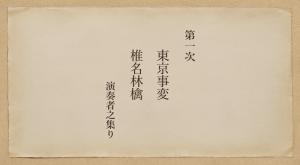 第一次
東京事変
椎名林檎
演奏者之集り